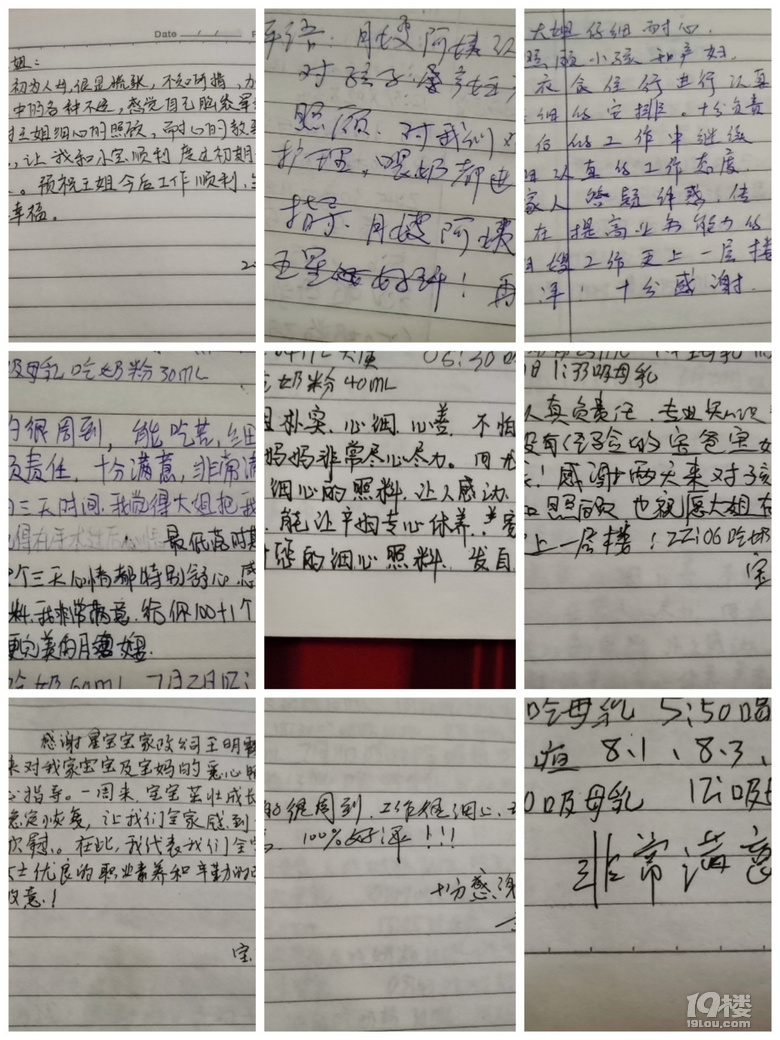 Date
姐:
初为人母,很是慌张,不知所措,
中的各种不适,感觉自己
王姐细心的照顾,耐心的教
,让我和小宝顺利度过初期
。预祝王姐今后工作顺利,
幸福。
评语:月嫂阿姨
对孩子
照顾.对我们
护理,喂奶都
指导.月嫂阿姨
五星 好评!再
大姐仔细耐心.
照顾小孩和产妇.
衣食住行进行认真
细的安排。十分负责
后的工作中继续
认真的工作态度.
家人答疑解惑.
在提高业务能力的
嫂工作更上一层楼
洋!十分感谢.
吸母乳吃奶粉30ML
的很周到,能吃苦,细
负责任,十分满意,非常满
三天时间.我觉得大姐把我
最低落时期
个三天心情都特别舒心,感
料.我非常满意.给你100+1个
更完美的月嫂
奶60ML 7月2日
06:30
奶粉40ML
朴实.心细.心善.不怕
妈妈非常尽心尽力。
细心的照料.让人感动.
.能让产妇专心休养.
的细心照料.发自
日1:35吸母乳
认真负责任.专业知识
没有经验的宝爸宝妈
!感谢两天来对孩
照顾 也祝愿大姐在
上一层楼!22:06吃奶
宝
感谢星宝宝家政公司王明
来对我家宝宝及宝妈的悉心照
心指导。一周来,宝宝茁壮成长
稳定恢复,让我们全家感到
欣慰。在此,我代表我们全
女士优良的职业素养和辛勤的
敬意!
宝
的很周到.工作很细心.
100%好评!!!
十分感谢
吃母乳 5:50喝
疸 8.1、8.3、
吸母乳 12:吸
非常满意
19楼
19lou.com